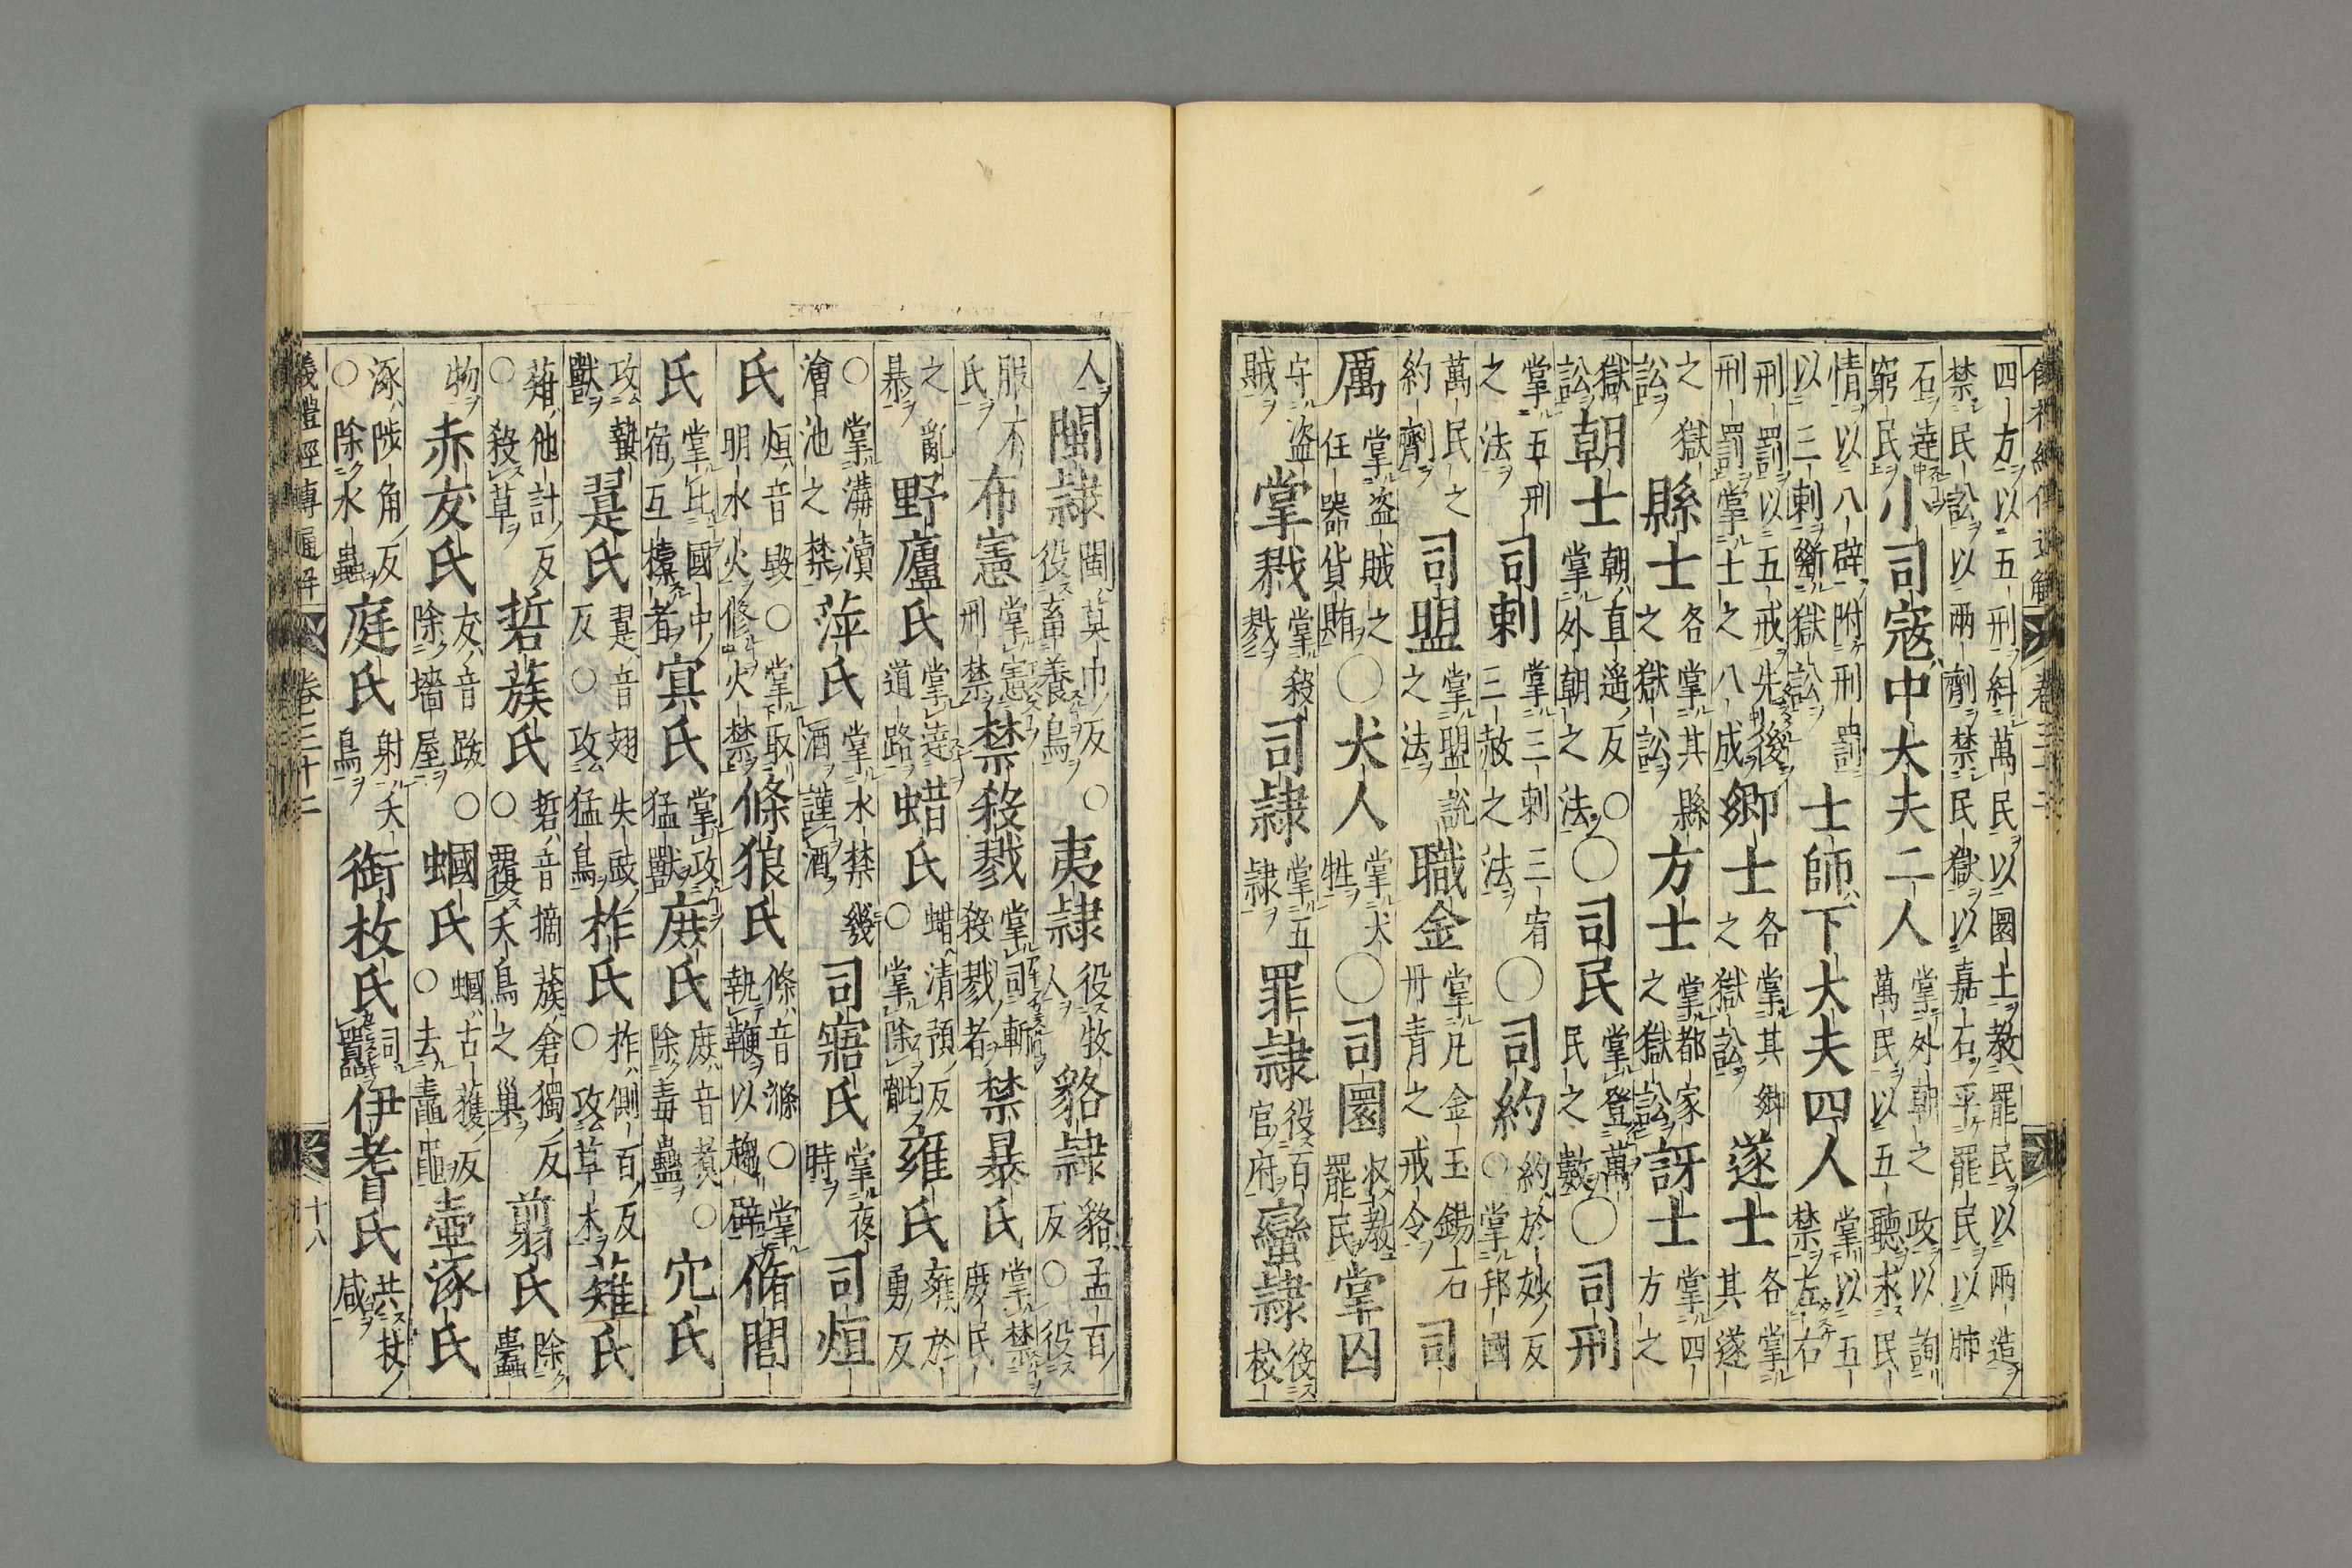 儀禮經傳通解 卷三十二
四方以五刑糾萬民以圜土教罷民以兩造禁民訟以兩劑禁民獄以嘉石平罷民以肺
石達窮民小司寇中大夫二人掌外朝之政以詢萬民以五聽求民
情以八辟附刑罰以三刺斷獄訟士師下大夫四人掌以五禁左右
刑罰以五戒先後刑罰掌士之八成鄉士各掌其鄉之獄訟遂士各掌其遂
之獄訟縣士各掌其縣之獄訟方士掌都家之獄訟訝士掌四方之
獄訟朝士朝直遥反○掌外朝之法○司民掌登萬民之數○司刑
掌五刑之法司刺掌三刺三宥三赦之法○司約約於妙反○掌邦國
萬民之約劑司盟掌盟說之法職金掌凡金玉錫石丹青之戒令司
厲掌盗賊之任器貨賄○犬人掌犬牲○司圜収教罷民掌囚
守盗賊掌戮掌殺戮司隷掌五隷罪隷役百官府蠻隷役校
人閩隷閩莫巾反○役畜養鳥夷隷役牧人貉隷貉孟百反○役
服不氏布憲掌憲刑禁禁殺戮掌司斬殺戮者禁暴氏掌禁庶民
之亂暴野廬氏掌達道路蜡氏蜡清預反○掌除骴雍氏雍於勇反
○掌溝瀆澮池之禁萍氏掌水禁幾酒謹酒司寤氏掌夜時司烜
氏烜音毀○掌取明水火修火禁條狼氏條音滌○掌執鞭以趨辟脩閭
氏掌比國中宿互㯓者冥氏掌攻猛獸庶氏庶音煮○除毒蠱穴氏
攻蟄獸翨氏翨音翅失豉反○攻猛鳥柞氏柞側百反○攻草木薙氏
薙他計反○殺草硩蔟氏硩音摘蔟倉獨反○覆夭鳥之巢翦氏除蠹
物赤犮氏犮音跋○除墻屋蟈氏蟈古獲反○去鼃黽壷涿氏
涿陟角反○除水蟲庭氏射夭鳥銜枚氏司嚻伊耆氏共杖咸
儀禮經傳通解 卷三十二 十八